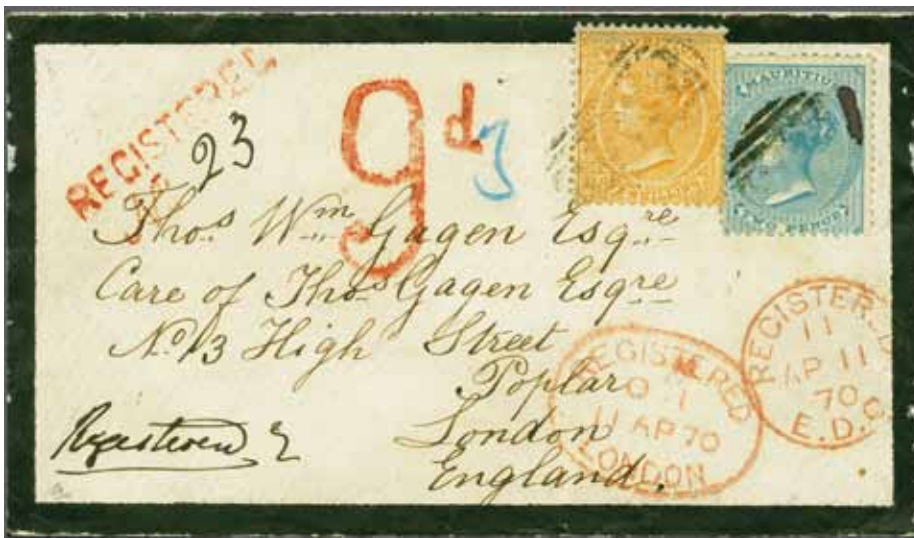 REGISTERED
23
9d
3
MAURITIUS
TWO PENCE
Thos. Wm. Gagen Esqre
Care of Thos Gagen Esqre
No. 13 High Street
Poplar
London
England.
Registered
REGISTERED
11 AP 70
LONDON
REGISTERED
11
AP 11
70
E.D.